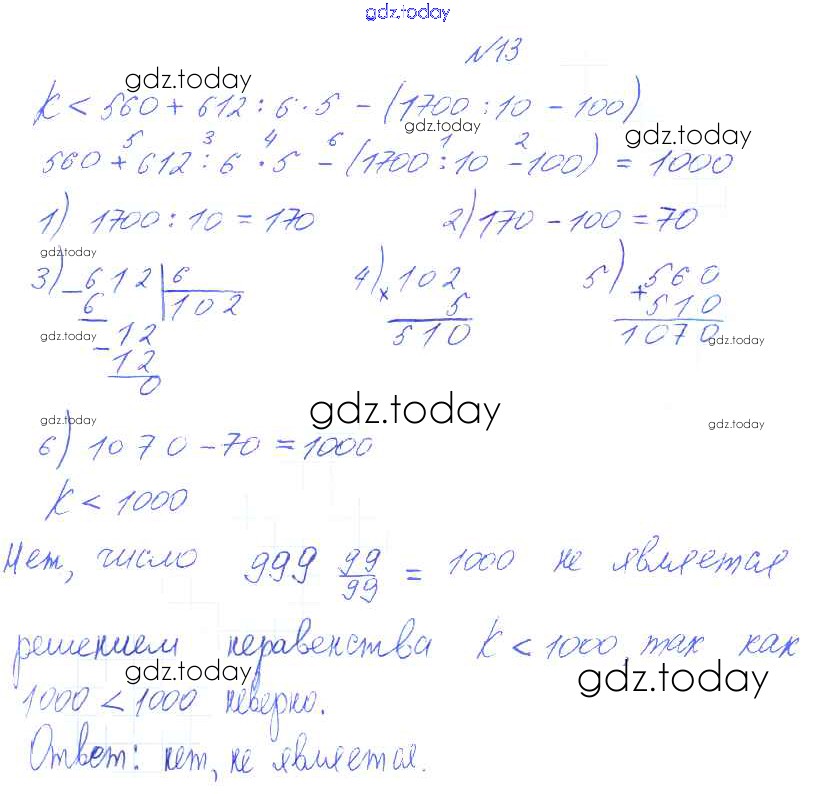 gdz.today
№13
gdz.today
K < 560 + 612 : 6 · 5 - (1700 : 10 - 100)
gdz.today
gdz.today
5 3 4 6 1 2
560 + 612 : 6 · 5 - (1700 : 10 - 100) = 1000
1) 1700 : 10 = 170 2) 170 - 100 = 70
gdz.today
3) - 612 | 6 4) × 102 5) + 560
6 102 5 510
- 12 510 1070
gdz.today gdz.today
12
0
gdz.today gdz.today gdz.today
6) 1070 - 70 = 1000
K < 1000
Нет, число 999 99/99 = 1000 не является
решением неравенства K < 1000, так как
gdz.today gdz.today
1000 < 1000 неверно.
Ответ: нет, не является.